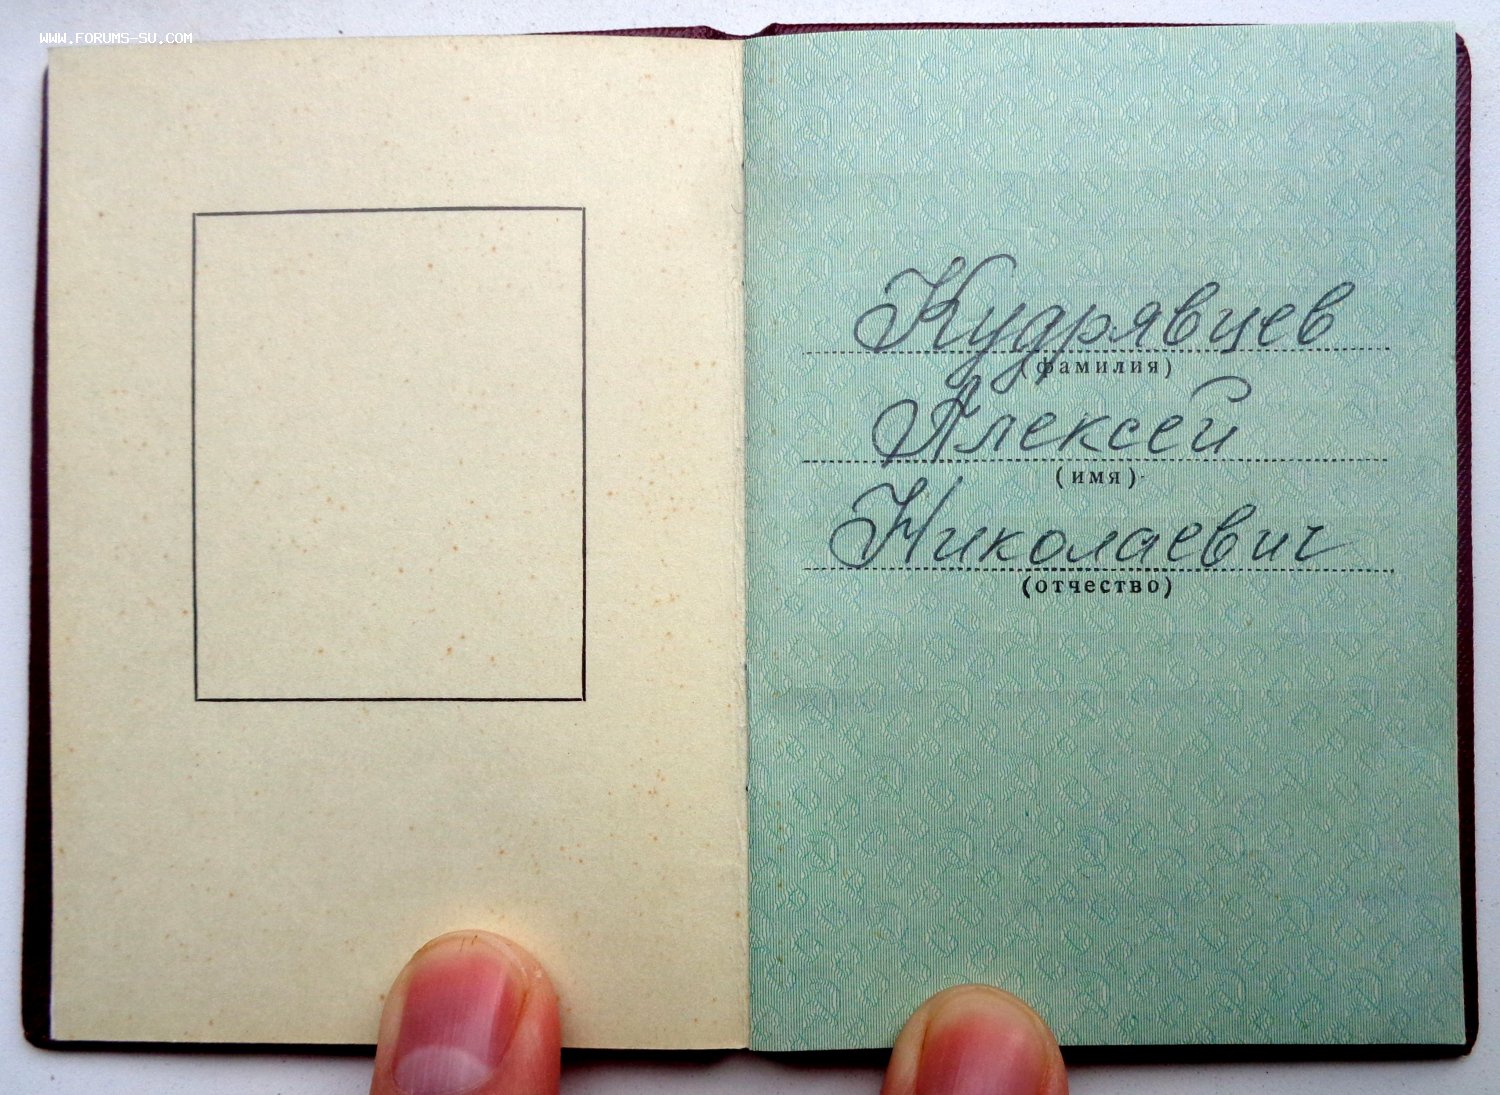 WWW.FORUMS-SU.COM
Кудрявцев
(фамилия)
Алексей
(имя)
Николаевич
(отчество)